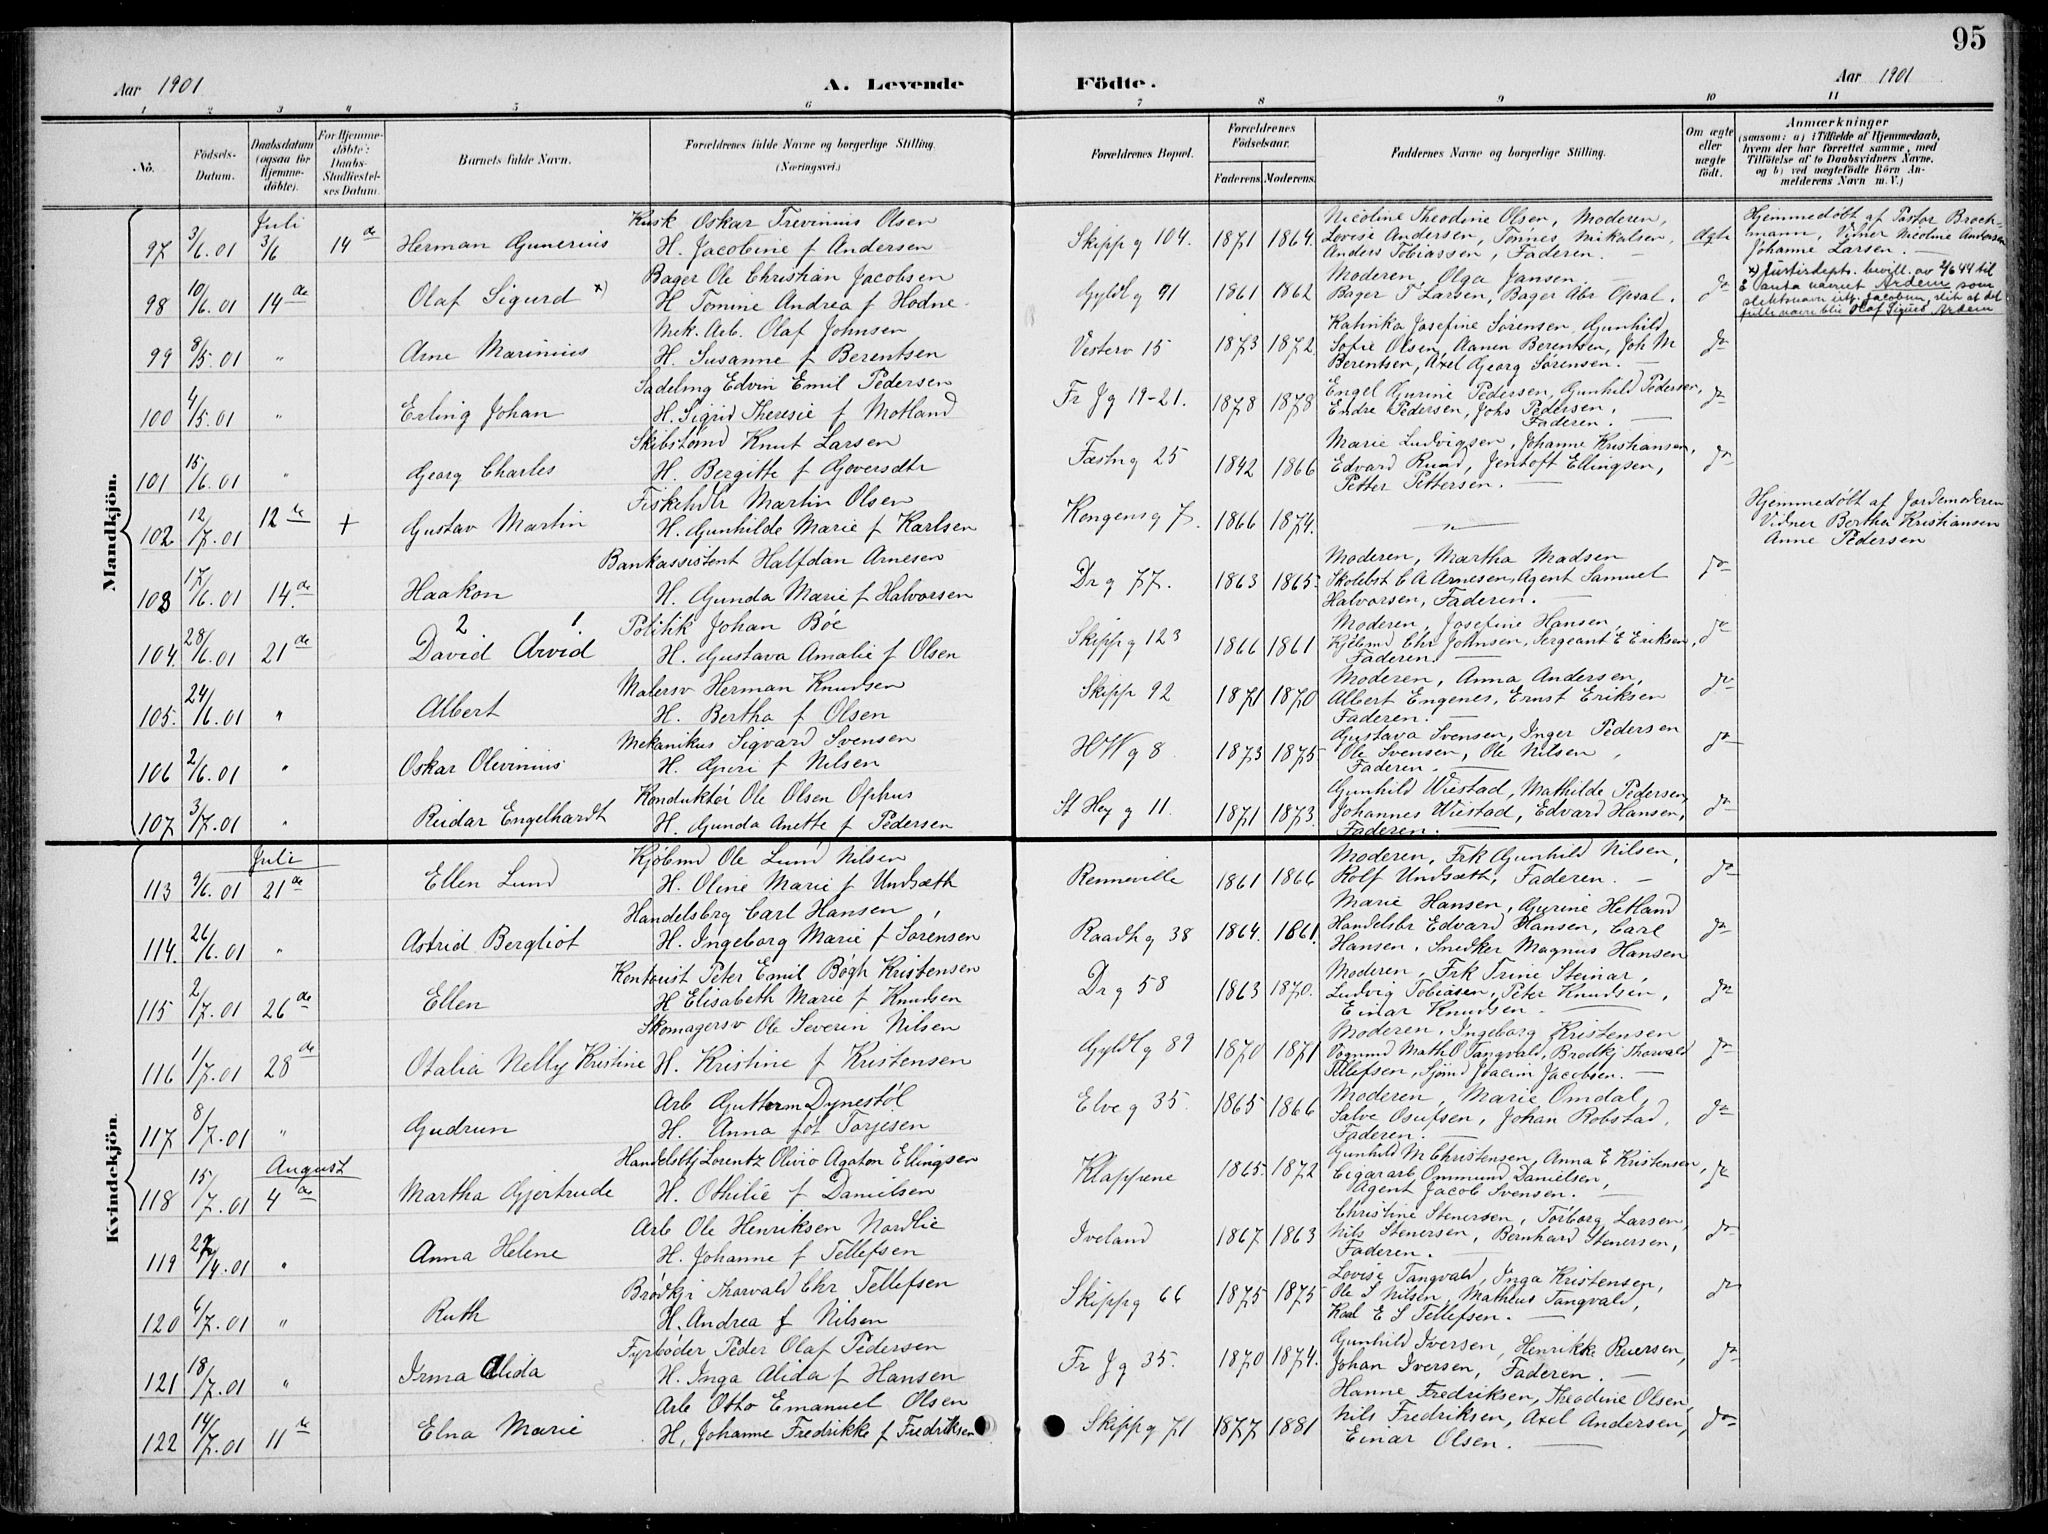 95
Aar 1901 A. Levende Födte. Aar 1901
1 2 3 4 5 6 7 8 9 10 11
No.
Födsels-
Datum.
Daabsdatum
(ogsaa for
Hjemme-
döbte).
For Hjemme-
döbte:
Daabs-
Stadfæstel-
ses Datum.
Barnets fulde Navn.
Forældrenes fulde Navne og borgerlige Stilling.
(Næringsvei.)
Forældrenes Bopæl.
Forældrenes
Födselsaar.
Faderens. Moderens.
Faddernes Navne og borgerlige Stilling.
Om ægte
eller
uægte
födt.
Anmærkninger
(saasom: a) i Tilfælde af Hjemmedaab,
hvem der har forrettet samme, med
Tilföielse af to Daabsvidners Navne,
og b) ved uægtefödte Börn An-
melderens Navn m. V.)
Mandkjön.
Juli
97 3/6.01 3/6 14 de Herman Gunerius
Kusk Oskar Trevinius Olsen
H. Jacobine f Andersen
Skippg 104. 1871 1864.
Nicoline Theodine Olsen, Moderen,
Lovise Andersen, Tönnes Mikalsen,
Anders Tobiassen, Faderen. —
Ægte
Hjemmedöbt af Pastor Brock-
mann, Vidner Nicoline Andersen
Johanne Larsen. —
98 10/6.01 14 de Olaf Sigurd x)
Bager Ole Christian Jacobsen
H Tomine Andrea f Hodne.
Gyldlg 91 1861 1862
Moderen, Olga Jansen —
Bager T Larsen, Bager Abr Opsal.
do
x) Justisdepts. bevill. av 2/6 44 til
å anta navnet Ardem som
slektsnavn istf. Jacobsen, slik at det
fulle navn blir Olaf Sigurd Ardem
99 8/5.01 " Arne Marinius
Mek. Arb. Olaf Johnsen
H. Susanne f Berentsen
Vesterv 15 1873 1872.
Katinka Josefine Sörensen, Gunhild
Sofie Olsen, Aanen Berentsen, Joh M
Berentsen, Axel Georg Sörensen.
do
100 4/5.01 " Erling Johan
Sadelmg Edvin Emil Pedersen
H. Sigrid Theresie f Motland
Fr Jg 19-21. 1878 1878
Engel Gurine Pedersen, Gunhild Pedersen,
Endre Pedersen, Johs Pedersen,
Faderen. —
do
101 15/6.01 " Georg Charles
Skibstömd Knut Larsen
H. Bergitte f Goversdtr
Fæstng 25 1842 1866
Marie Ludvigsen, Johanne Kristiansen,
Edvard Ruud, Jentoft Ellingsen,
Petter Pettersen. —
do
102 12/7.01 12 te + Gustav Martin
Fiskehdlr Martin Olsen
H. Gunhilde Marie f Karlsen
Kongensg 7. 1866 1874.
— " —
Hjemmedöbt af Jordemoderen
Vidner Berthe Kristiansen
Anne Pedersen
103 17/6.01 14. de Haakon
Bankassistent Halfdan Arnesen
H. Gunda Marie f Halvorsen
Dr g 77. 1863 1865.
Moderen, Martha Madsen
Skolebst C A Arnesen, Agent Samuel
Halvorsen, Faderen. —
do
104. 28/6.01 21 de 2 1.
David Arvid
Politik Johan Böe
H. Gustava Amalie f Olsen
Skippg 123 1866 1861
Moderen, Josefine Hansen,
Kjöbmd Chr Johnsen, Sergeant E Eriksen,
Faderen. —
do
105. 24/6.01 " Albert
Malersv Herman Knudsen
H. Bertha f Olsen
Skipp 92 1871 1870
Moderen, Anna Andersen,
Albert Engenes, Ernst Eriksen
Faderen. —
do
106 2/6.01 " Oskar Olivinius
Mekanikus Sigvard Svensen
H. Guri f Nilsen
H W g 8 1873 1875
Gustava Svensen, Inger Pedersen
Ole Svensen, Ole Nilsen,
Faderen. —
do
107 3/7.01 " Reidar Engelhardt
Konduktör Ole Olsen Ophus
H. Gunda Anette f Pedersen
St Hey g 11. 1871 1873.
Gunhild Wiestad, Mathilde Pedersen,
Johannes Wiestad, Edvard Hansen,
Faderen. —
do
Kvindekjön
Juli
113 9/6.01 21 de Ellen Lund
Kjöbmd Ole Lund Nilsen
H. Oline Marie f Undsæth
Renneville 1861 1866
Moderen, Frk Gunhild Nilsen,
Rolf Undsæth, Faderen. —
do
114. 26/6.01 " Astrid Bergliot
Handelsbrg Carl Hansen,
H. Ingeborg Marie f Sörensen
Raadhg 38 1864. 1861.
Marie Hansen, Gurine Hetland
Handelsbr Edvard Hansen, Carl
Hansen, Snedker Magnus Hansen
do
115 2/7.01 26 de Ellen
Kontorist Peter Emil Bögh Kristensen
H Elisabeth Marie f Knudsen
Dr g 58 1863 1870.
Moderen, Frk Trine Steinar,
Ludvig Tobiasen, Peter Knudsen,
Einar Knudsen. —
do
116 1/7.01 28 de Otalia Nelly Kristine
Skomagersv Ole Severin Nilsen
H. Kristine f Kristensen
Gyldlg 89 1870 1871
Moderen, Ingeborg Kristensen
Vognmd Math O Tangvald, Brödkj Thorvald
Tellefsen, Sjömd Joacim Jacobsen. —
do
117 8/7.01 " Gudrun
Arb Guttorm Dynestöl
H. Anna föt Torjesen
Elveg 35. 1865 1866
Moderen, Marie Omdal,
Salve Osufsen, Johan Robstad,
Faderen. —
do
August
118 15/7.01 4 de Martha Gjertrude
Handelsbtj Lorentz Olivio Agaton Ellingsen
H. Othilie f Danielsen
Klappene 1865. 1872
Gunhild M Christensen, Anna E Kristensen,
Cigararb. Ommund Danielsen,
Agent Jacob Svensen. —
do
119 /4.01 " Anna Helene
Arb Ole Henriksen Nordlie
H. Johanne f Tellefsen
Iveland 1867. 1863
Christine Stenersen, Torborg Larsen,
Nils Stenersen, Bernhard Stenersen,
Faderen. —
do
120 6/7.01 " Ruth
Brödkjr Thorvald Chr Tellefsen
H. Andrea f Nilsen
Skippg 66 1875 1875
Lovise Tangvald, Inga Kristensen,
Ole S Nilsen, Matheus Tangvald,
Karl E S Tellefsen. —
do
121 18/7.01 " Irma Alida
Fyrböder Peder Olaf Pedersen
H. Inga Alida f Hansen
Fr J g 35. 1870 1874.
Gunhild Iversen, Henrikke Reiersen,
Johan Iversen, Faderen. —
do
122 14/7.01 11 te Elna Marie
Arb Otto Emanuel Olsen
H, Johanne Fredrikke f Fredriksen
Skippg 71 1877 1881
Hanne Fredriksen, Theodine Olsen,
Nils Fredriksen, Axel Andersen,
Einar Olsen. —
do